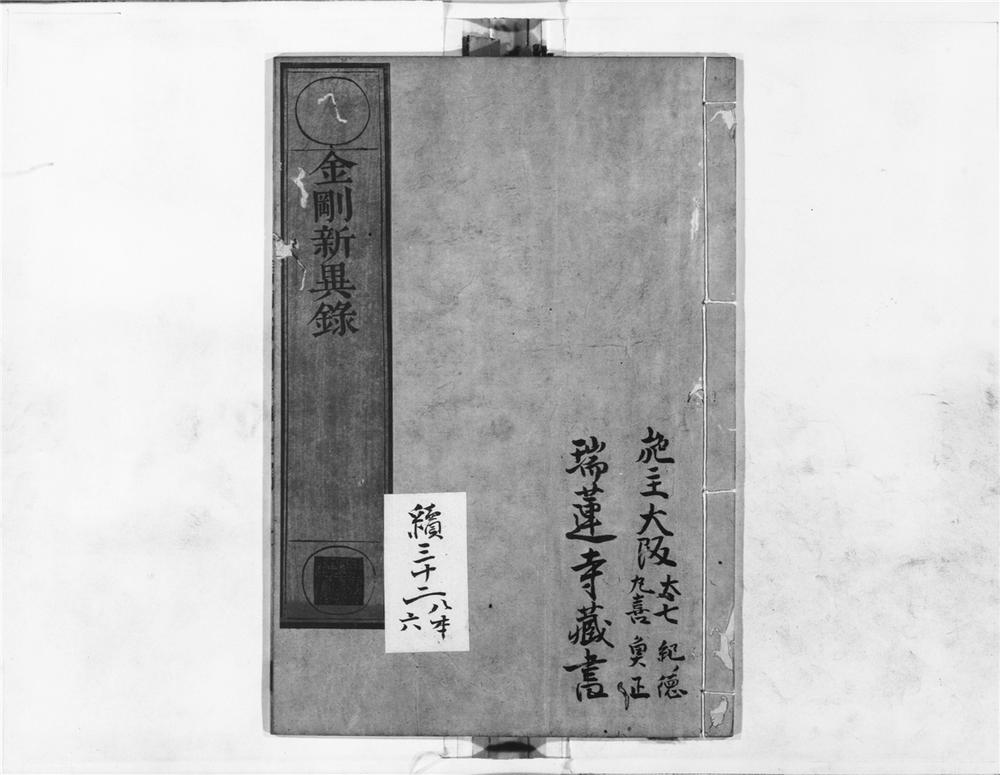 施主大阪
太七 紀徳
丸喜 奥正
瑞蓮寺藏書
續三十二
八本
六
金剛新異錄